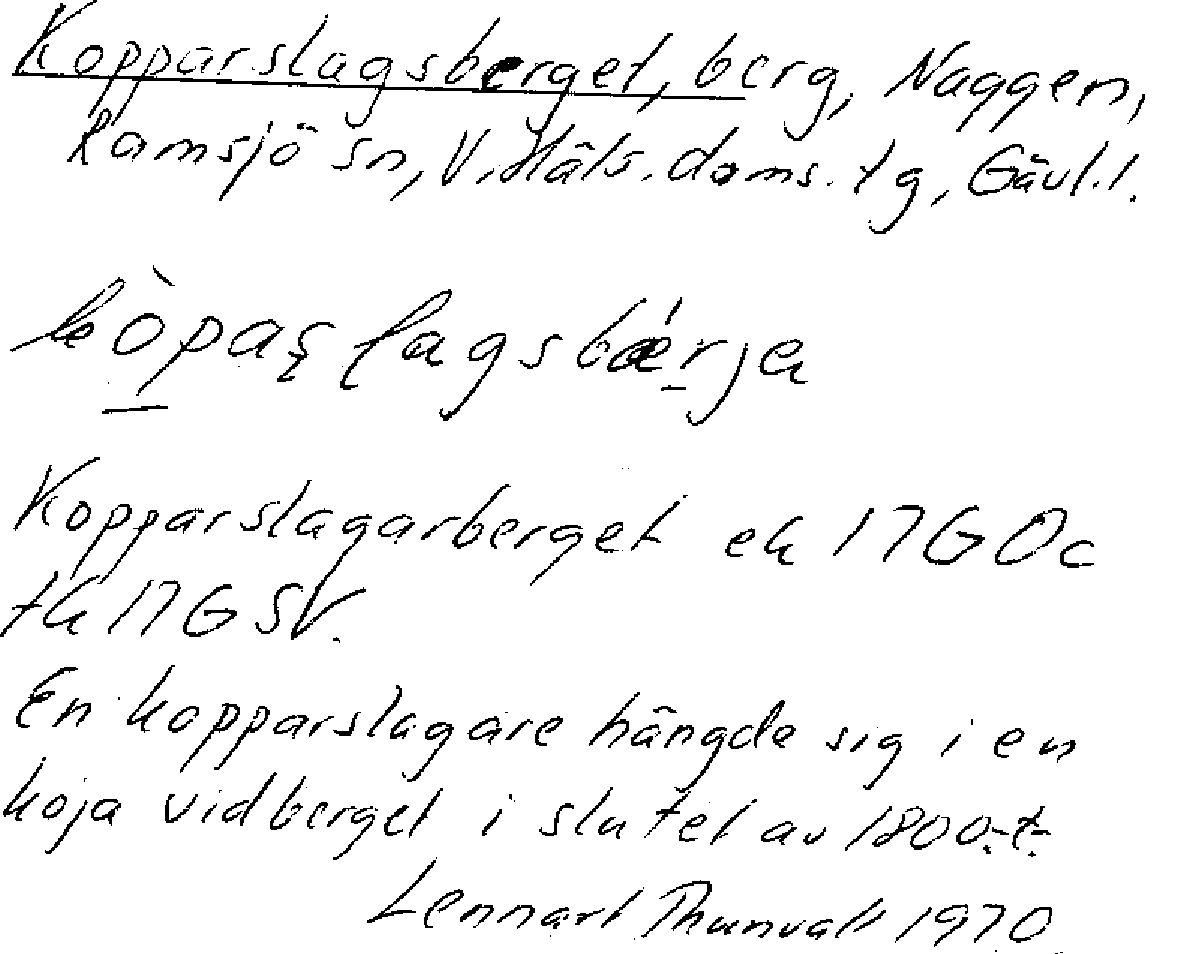 Kopparslagsberget, berg, Naggen,
Ramsjö sn, V. Häls. doms. tg, Gävl.l.
Kopparslagarberget ek 17G0c
tk 17G SV.
En kopparslagare hängde sig i en
koja vid berget i slutet av 1800-t.
Lennart Thunvall 1970